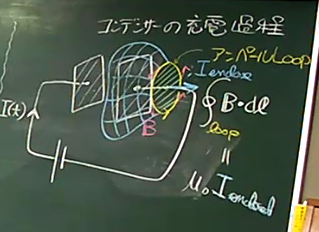 コンデンサーの充電過程
アンペールLoop
I enclose
I(t)
B
∮ B・dl
loop
=
μ₀ I enclosed